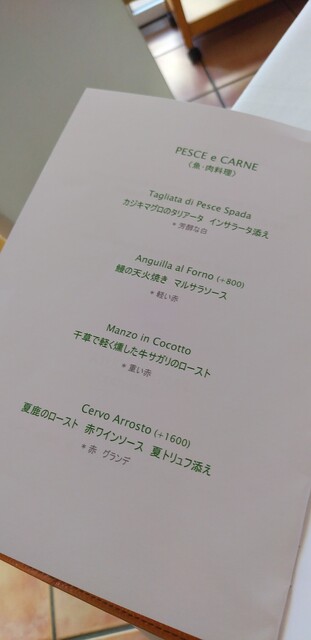 PESCE e CARNE
〈魚・肉料理〉
Tagliata di Pesce Spada
カジキマグロのタリアータ インサラータ添え
* 芳醇な白
Anguilla al Forno (+800)
鰻の天火焼き マルサラソース
* 軽い赤
Manzo in Cocotto
干草で軽く燻した牛サガリのロースト
* 重い赤
Cervo Arrosto (+1600)
夏鹿のロースト 赤ワインソース 夏トリュフ添え
* 赤 グランデ